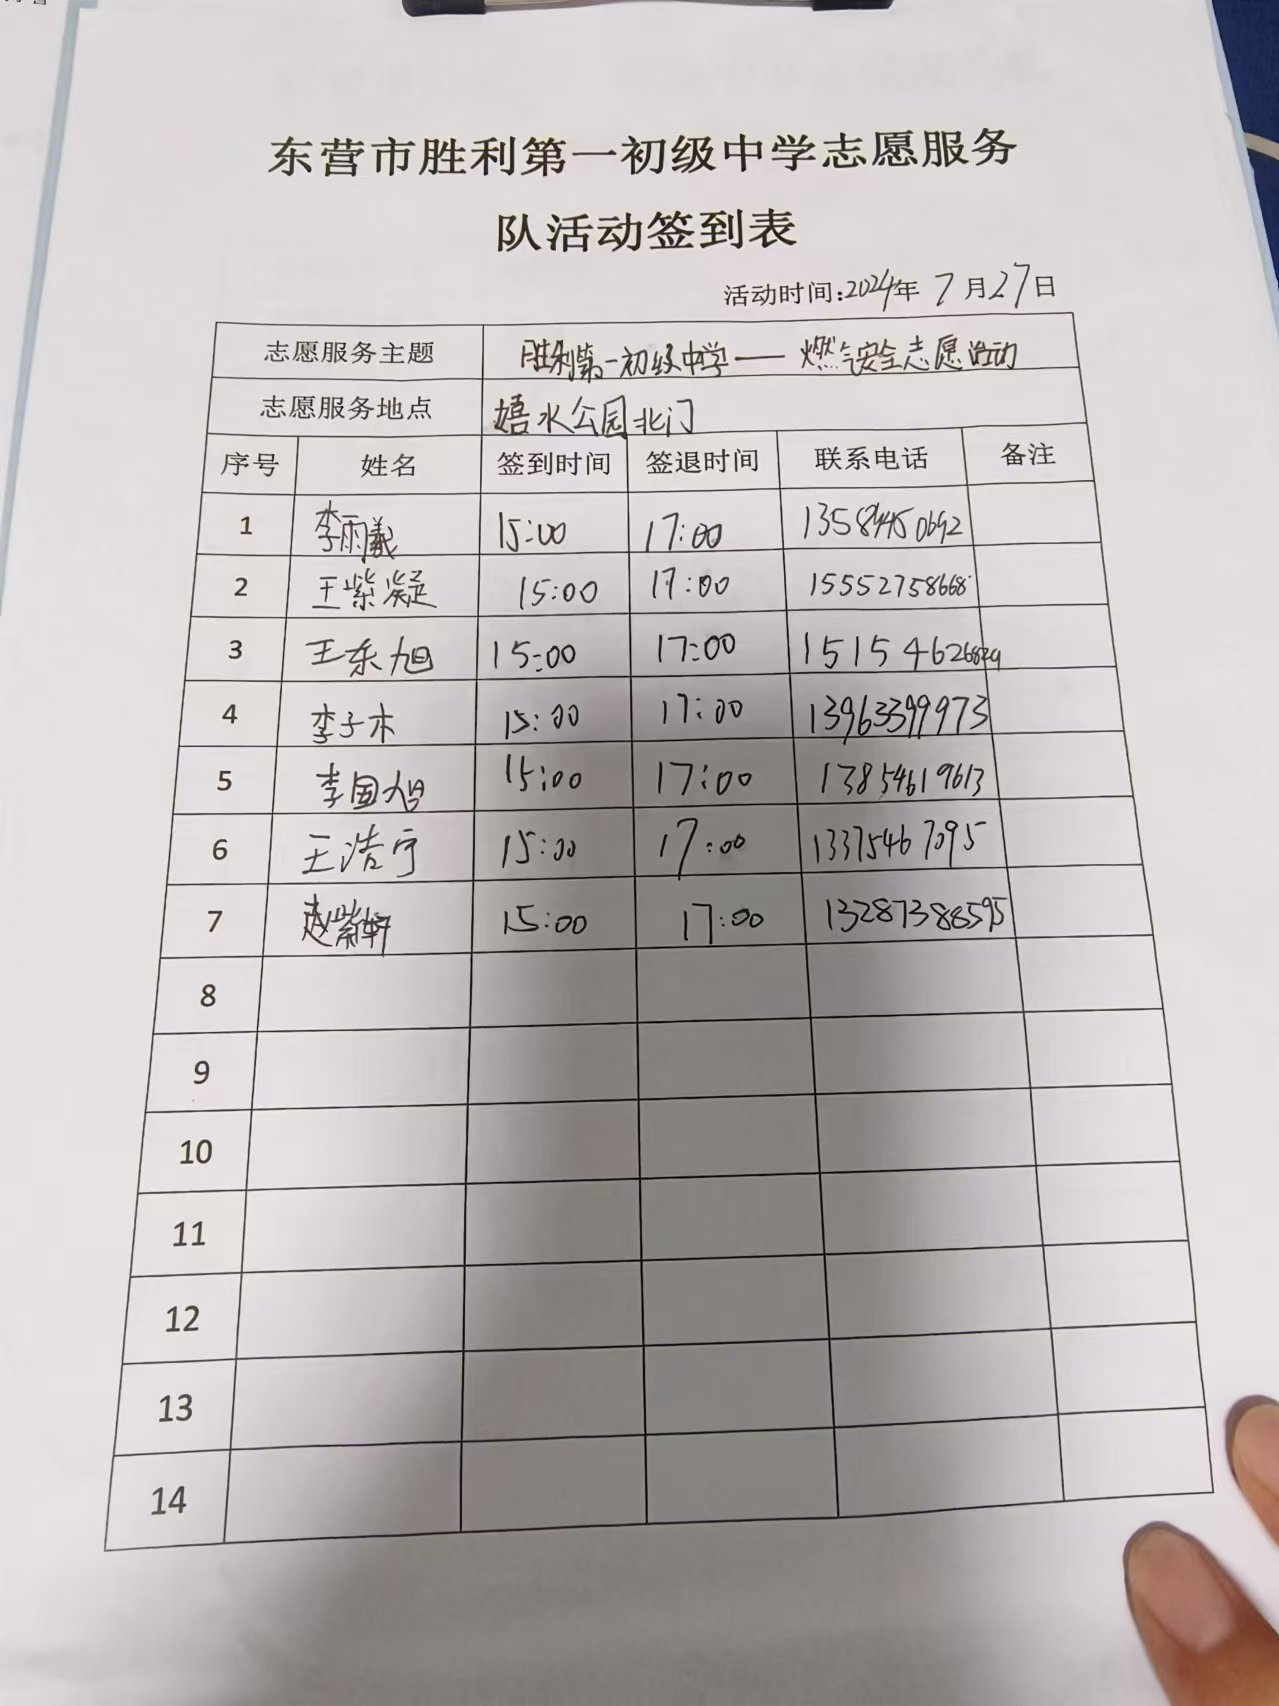 东营市胜利第一初级中学志愿服务
队活动签到表
活动时间:2024年 7月27日
志愿服务主题 胜利第一初级中学——燃气安全志愿活动
志愿服务地点 嬉水公园北门
序号 姓名 签到时间 签退时间 联系电话 备注
1 李雨羲 15:00 17:00
2 王紫凝 15:00 17:00 15552758668
3 王东旭 15:00 17:00
4 李子木 15:00 17:00 13963399973
5 李国旭 15:00 17:00 13854619613
6 王浩宇 15:00 17:00 13375467095
7 赵紫轩 15:00 17:00 13287388595
8
9
10
11
12
13
14